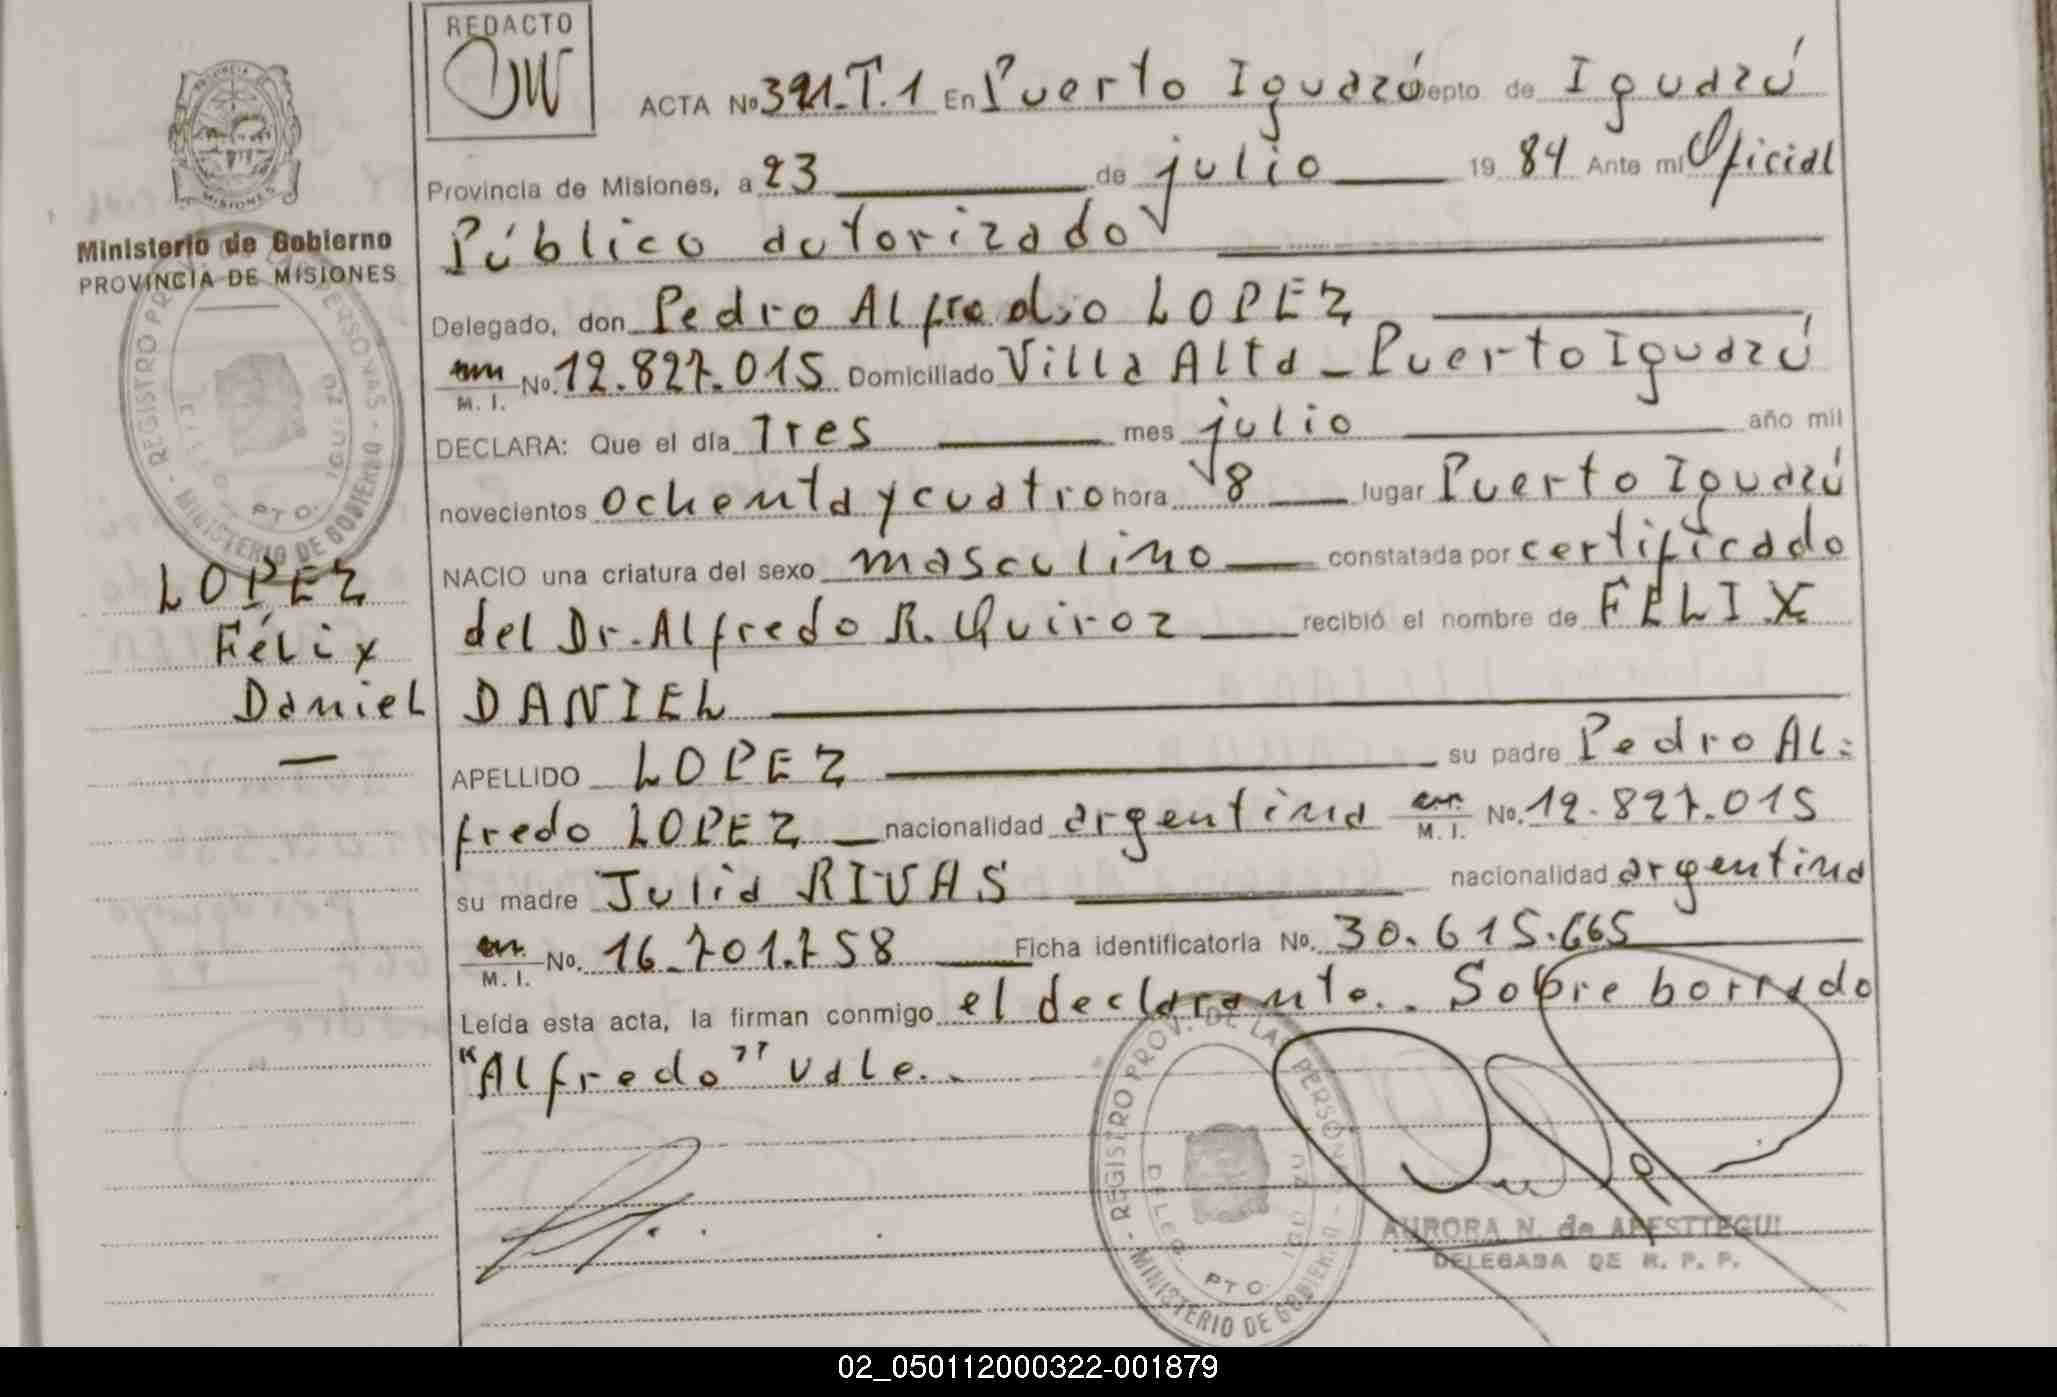 REDACTO
ACTA No 391-T.1 En Puerto Iguazú Depto de Iguazú
Provincia de Misiones, a 23 de julio 1984 Ante mi Oficial
Público autorizado
MISIONES
Ministerio de Gobierno
PROVINCIA DE MISIONES
Delegado, don Pedro Alfredo LOPEZ
M. I. No. 12.827.015 Domiciliado Villa Alta - Puerto Iguazú
DECLARA: Que el día Tres mes julio año mil
novecientos ochenta y cuatro hora 8 lugar Puerto Iguazú
NACIO una criatura del sexo masculino constatada por certificado
del Dr. Alfredo R. Quiroz recibió el nombre de FELIX
DANIEL
LOPEZ
Félix
Daniel
APELLIDO LOPEZ su padre Pedro Al=
fredo LOPEZ nacionalidad argentina M. I. No. 12.827.015
su madre Julia RIVAS nacionalidad argentina
M. I. No. 16.701.758 Ficha identificatoria No. 30.615.665
Leída esta acta, la firman conmigo el declarante.. Sobre borrado
"Alfredo" vale..
REGISTRO PROV. DE LAS PERSONAS - MINISTERIO DE GOBIERNO -
DELEG. PTO. IGUAZU
AURORA N. de APESTTEGUI
DELEGADA DE R. P. P.
02_050112000322-001879